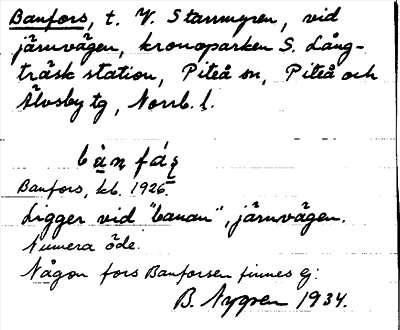 Banfors, t. V. Starrmyren, vid
järnvägen, kronoparken S. Lång-
träsk station, Piteå sn, Piteå och
Älvsby tg, Norrb. l.
bàn fáʂ
Banfors, kb. 1926.
Ligger vid "banan", järnvägen.
Numera öde.
Någon fors Banforsen finnes ej.
B. Nygren 1934.